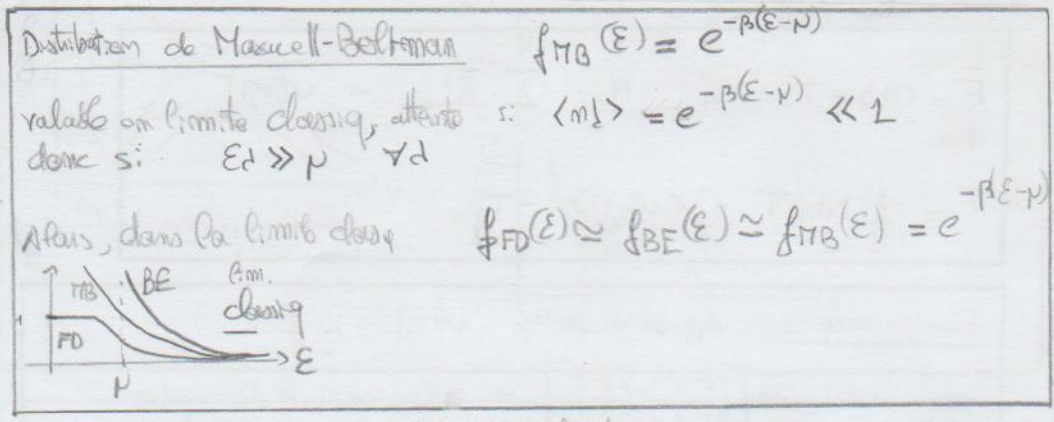 Distribution de Maxwell-Boltzman f_MB(ε) = e^{-β(ε-μ)}
valable en limite classiq, atteinte si ⟨n_λ⟩ = e^{-β(ε-μ)} ≪ 1
donc si ε_λ ≫ μ ∀λ
Alors, dans la limite classq f_FD(ε) ≃ f_BE(ε) ≃ f_MB(ε) = e^{-β(ε-μ)}
MB BE lim.
classiq
1 FD
ε
μ